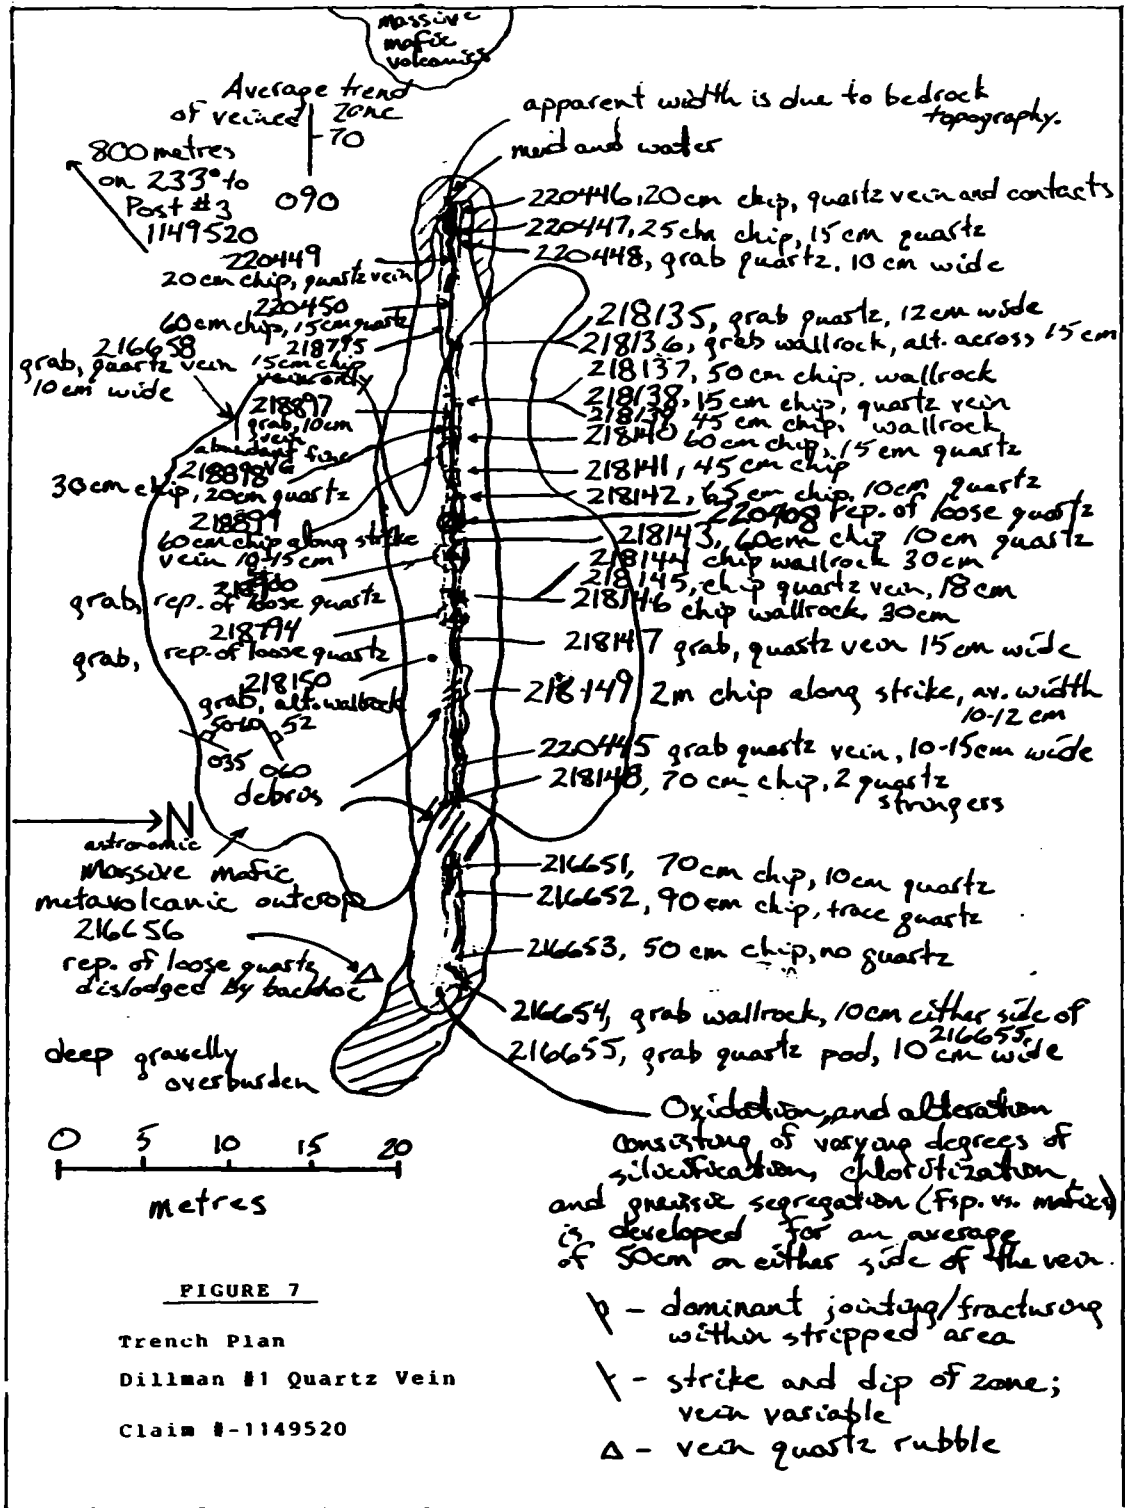 massive
mafic
volcanics
Average trend
of veined zone
70
090
800 metres
on 233° to
Post #3
1149520
apparent width is due to bedrock
topography.
mud and water
220446, 20 cm chip, quartz vein and contacts
220447, 25 cm chip, 15 cm quartz
220448, grab quartz, 10 cm wide
220449
20 cm chip, quartz vein
220450
60 cm chip, 15 cm quartz
216658
grab, quartz vein
10 cm wide
218795
15 cm chip
vein only
218897
grab, 10 cm
vein
abundant fine
VG
218898
30 cm chip, 20 cm quartz
218899
60 cm chip along strike
vein 10-15 cm
grab, rep. of loose quartz
218794
grab, rep. of loose quartz
218150
grab, alt. wallrock
50-60
52
035
060
debris
218135, grab quartz, 12 cm wide
218136, grab wallrock, alt. across 15 cm
218137, 50 cm chip, wallrock
218138, 15 cm chip, quartz vein
218139, 45 cm chip, wallrock
218140 60 cm chip, 15 cm quartz
218141, 45 cm chip
218142, 65 cm chip, 10 cm quartz
220408 rep. of loose quartz
218143, 60 cm chip 10 cm quartz
218144 chip wallrock 30 cm
218145, chip quartz vein, 18 cm
218146 chip wallrock, 30 cm
218147 grab, quartz vein 15 cm wide
218149 2m chip along strike, av. width
10-12 cm
220445 grab quartz vein, 10-15 cm wide
218148, 70 cm chip, 2 quartz
stringers
N
astronomic
Massive mafic
metavolcanic outcrop
216656
rep. of loose quartz
dislodged by backhoe
deep gravelly
overburden
216651, 70 cm chip, 10 cm quartz
216652, 90 cm chip, trace quartz
216653, 50 cm chip, no quartz
216654, grab wallrock, 10 cm either side of
216655,
216655, grab quartz pod, 10 cm wide
Oxidation, and alteration
consisting of varying degrees of
silicification, chloritization,
and gneissic segregation (Fsp. vs. mafics)
is developed for an average
of 50 cm on either side of the vein.
0 5 10 15 20
metres
FIGURE 7
Trench Plan
Dillman #1 Quartz Vein
Claim #-1149520
- dominant jointing/fracturing
within stripped area
- strike and dip of zone;
vein variable
Δ - vein quartz rubble